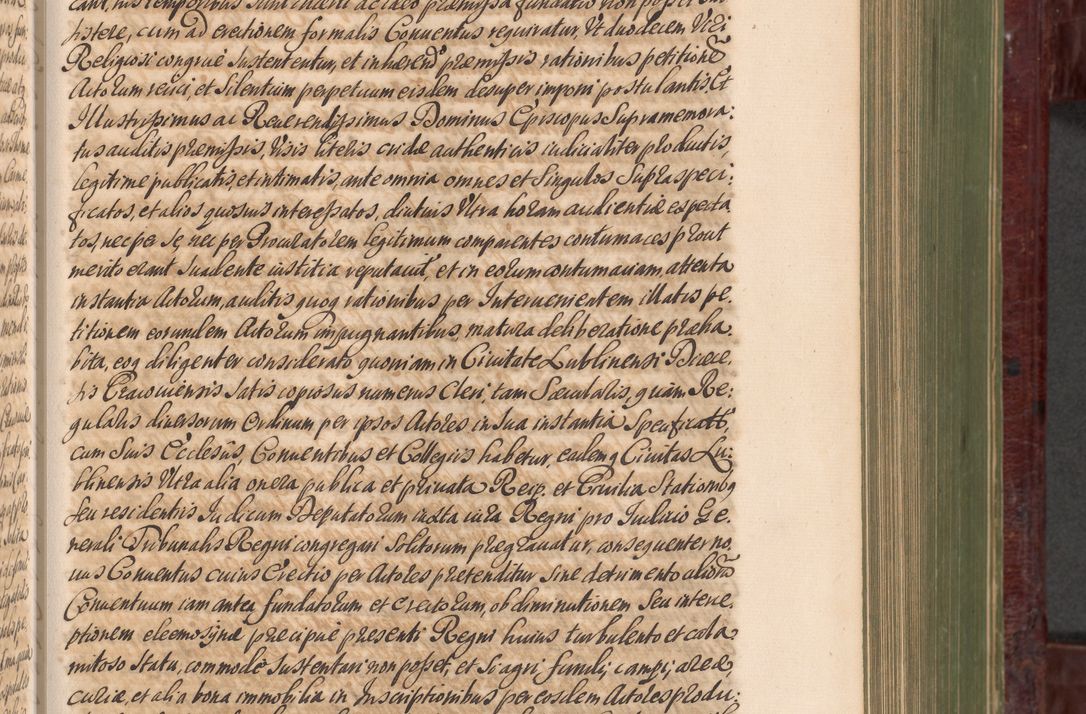 sistere, cum ad erectionem formalis Conuentus requiratur, Vt duodecem Viri
Religiosi congruè sustententur, et inhærend præmissis rationibus petitione
Actorum reiici, et Silentium perpetuum eisdem desuper imponi postulantis, Et
Illustrissimus ac Reuerendissimus Dominus Episcopus Supramemora:
tus auditis præmissis, Visis literis cridæ authenticis iudicialiter productis,
legitime publicatis, et intimatis, ante omnia omnes et Singulos Supraspeci:
ficatos, et alios quosuis interessatos, diutius Vltra horam audientiæ expecta
tos, nec per se nec per Procuratorem legitimum comparentes contumaces prout
merito erant suadente iustitia reputauit, et in eorum contumaciam, attenta
instantia Actorum, auditis quoq rationibus per Interuenientem illatis pe.
titionem eorundem Actorum impugnantibus, matura deliberatione præha
bita, eoq diligenter considerato, quoniam in Ciuitate Lublinensi Diæce
sis Cracouiensis Satis copiosus numerus Cleri, tam Sæcularis, quam Re:
gularis diuersorum Ordinum per ipsos Actores in Sua instantia Specificatt,
cum Suis Ecclesijs, Conuentibus et Collegiis habetur, eademq Ciuitas Lu:
blinensis Vltra alia onera publica et priuata Reip. et Ciuilia Stationibq
seu residentiis Iudicum Deputatorum iuxta iura Regni pro Iudicio Ge.
nerali Tribunalis Regni congregari Solitorum prægrauatur, consequenter no,
uus Conuentus cuius Erectio per Actores prætenditur Sine detrimento aliorũ
Conuentuum iam antea fundatorum et Erectorum, ob diminutionem Seu interce.
ptionem eleemosÿnæ præcipuè præsenti Regni huius turbulento et cala
mitoso statu, commodè Sustentari non posset, et Si agri, fundi, campi, areæ
curiæ, et alia bona immobilia in Inscriptionibus per eosdem Actores produ: